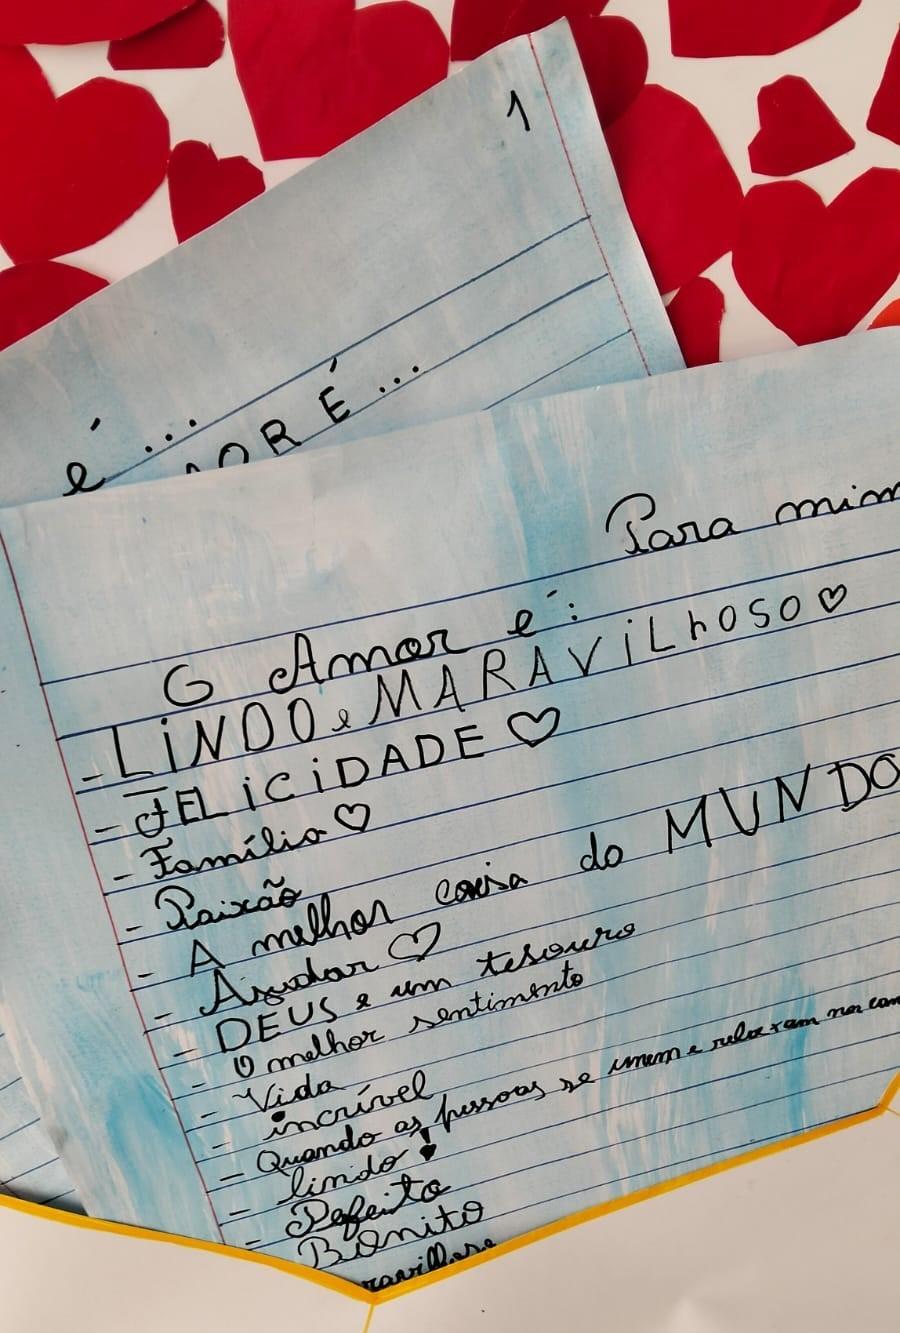 1
é...
OR É...
Para mim
O Amor é:
- LINDO e MARAVILHOSO
- FELICIDADE
- Família
- Paixão
- A melhor coisa do MUNDO
- Ajudar
- DEUS e um tesouro
- O melhor sentimento
- Vida
- incrível
- Quando as pessoas se unem e relaxam na cam
- lindo!
- Pefeito
Bonito
ravilhoso